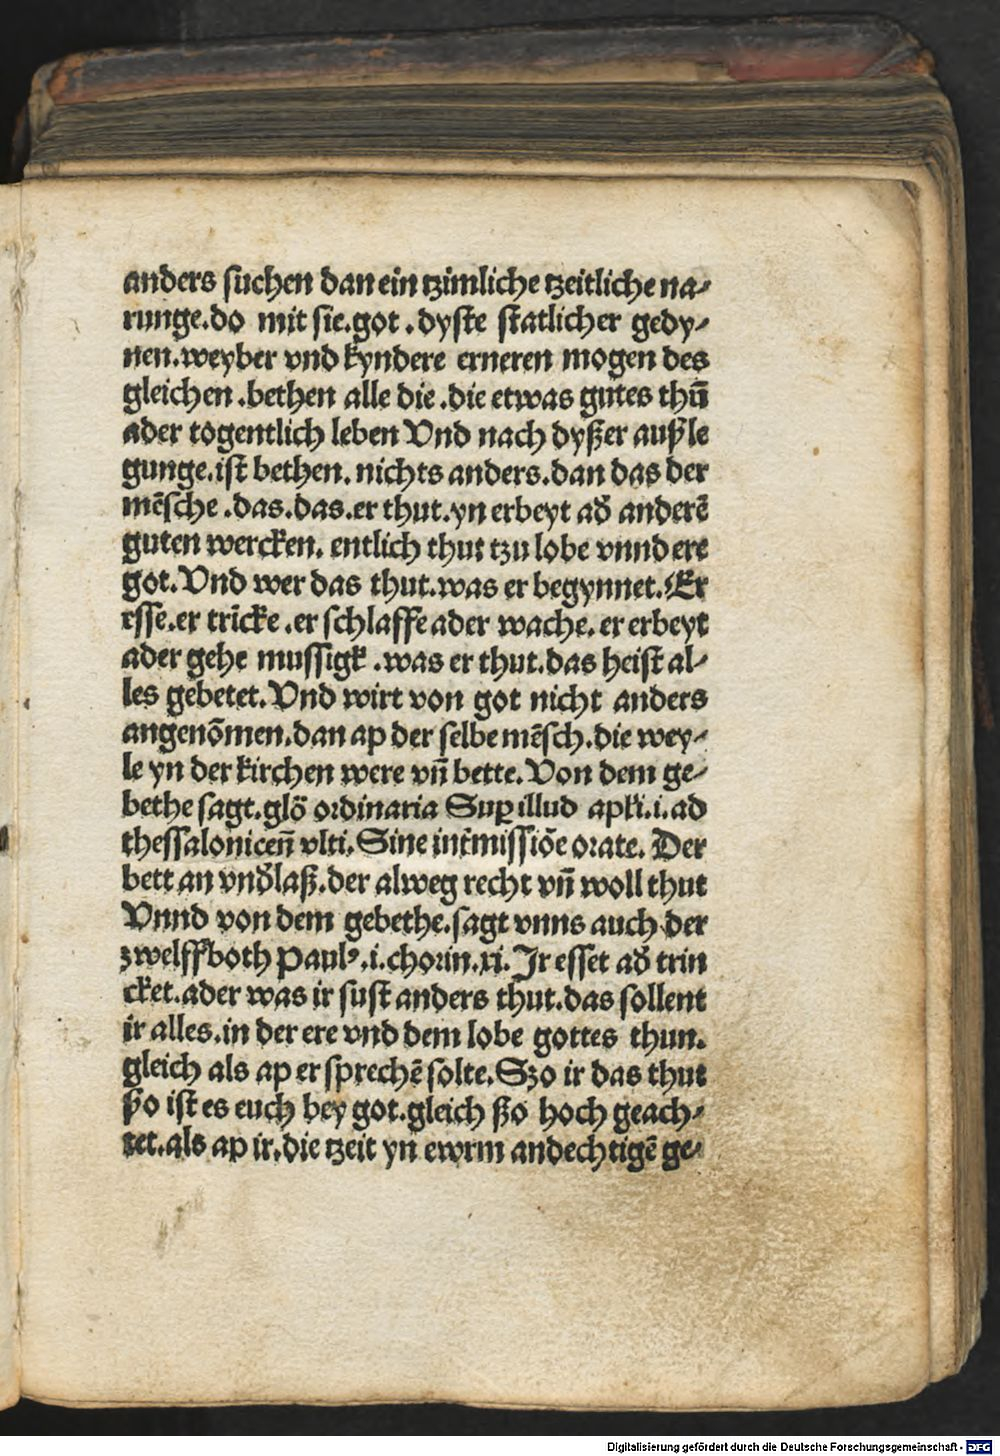 anders suchen dan ein tzimliche tzeitliche na⸗
runge.do mit sie.got .dyste statlicher gedy⸗
nen.weyber vnd kyndere erneren mogen des
gleichen .bethen alle die .die etwas gutes thū
ader togentlich leben Vnd nach dyßer außle
gunge.ist bethen. nichts anders.dan das der
mēsche .das.das.er thut.yn erbeyt ad̄ anderē
guten wercken. entlich thut tzu lobe vnnd ere
got. Vnd wer das thut.was er begynnet. Er
esse.er trīcke .er schlaffe ader wache. er erbeyt
ader gehe mussigk .was er thut.das heist al⸗
les gebetet. Vnd wirt von got nicht anders
angenōmen.dan ap der selbe mēsch.die wey⸗
le yn der kirchen were vn̄ bette. Von dem ge⸗
bethe sagt.glo᷑ ordinaria Suꝑ illud apl̄i.i.ad
thessalonicen̄ vlti. Sine int᷑missiōe orate. Der
bett an vnd̄laß.der alweg recht vn̄ woll thut
Vnnd von dem gebethe.sagt vnns auch der
zwelffboth Paulꝰ.i.chorin.xi. Jr esset ad̄ trin
cket.ader was ir sust anders thut.das sollent
ir alles.in der ere vnd dem lobe gottes thun.
gleich als ap er sprechē solte. Szo ir das thut
ßo ist es euch bey got.gleich ßo hoch geach⸗
tet.als ap ir.die tzeit yn ewrm andechtigē ge⸗
Digitalisierung gefördert durch die Deutsche Forschungsgemeinschaft - DFG